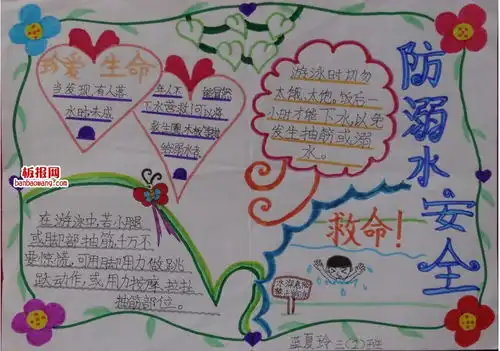 珍爱 生命
当发现有人落
水时,未成
年人不能冒然
下水营救,可以将
救生圈、木板等抛
给溺水者。
游泳时切勿
太饿、太饱。饭后一
小时才能下水,以免
发生抽筋或溺
水。
防溺水安全
在游泳中,若小腿
或脚部抽筋,千万不
要惊慌,可用脚用力做跳
跃动作,或用力按摩、拉扯
抽筋部位。
救命!
蓝夏玲 三(2)班
板报网
banbaowang.com